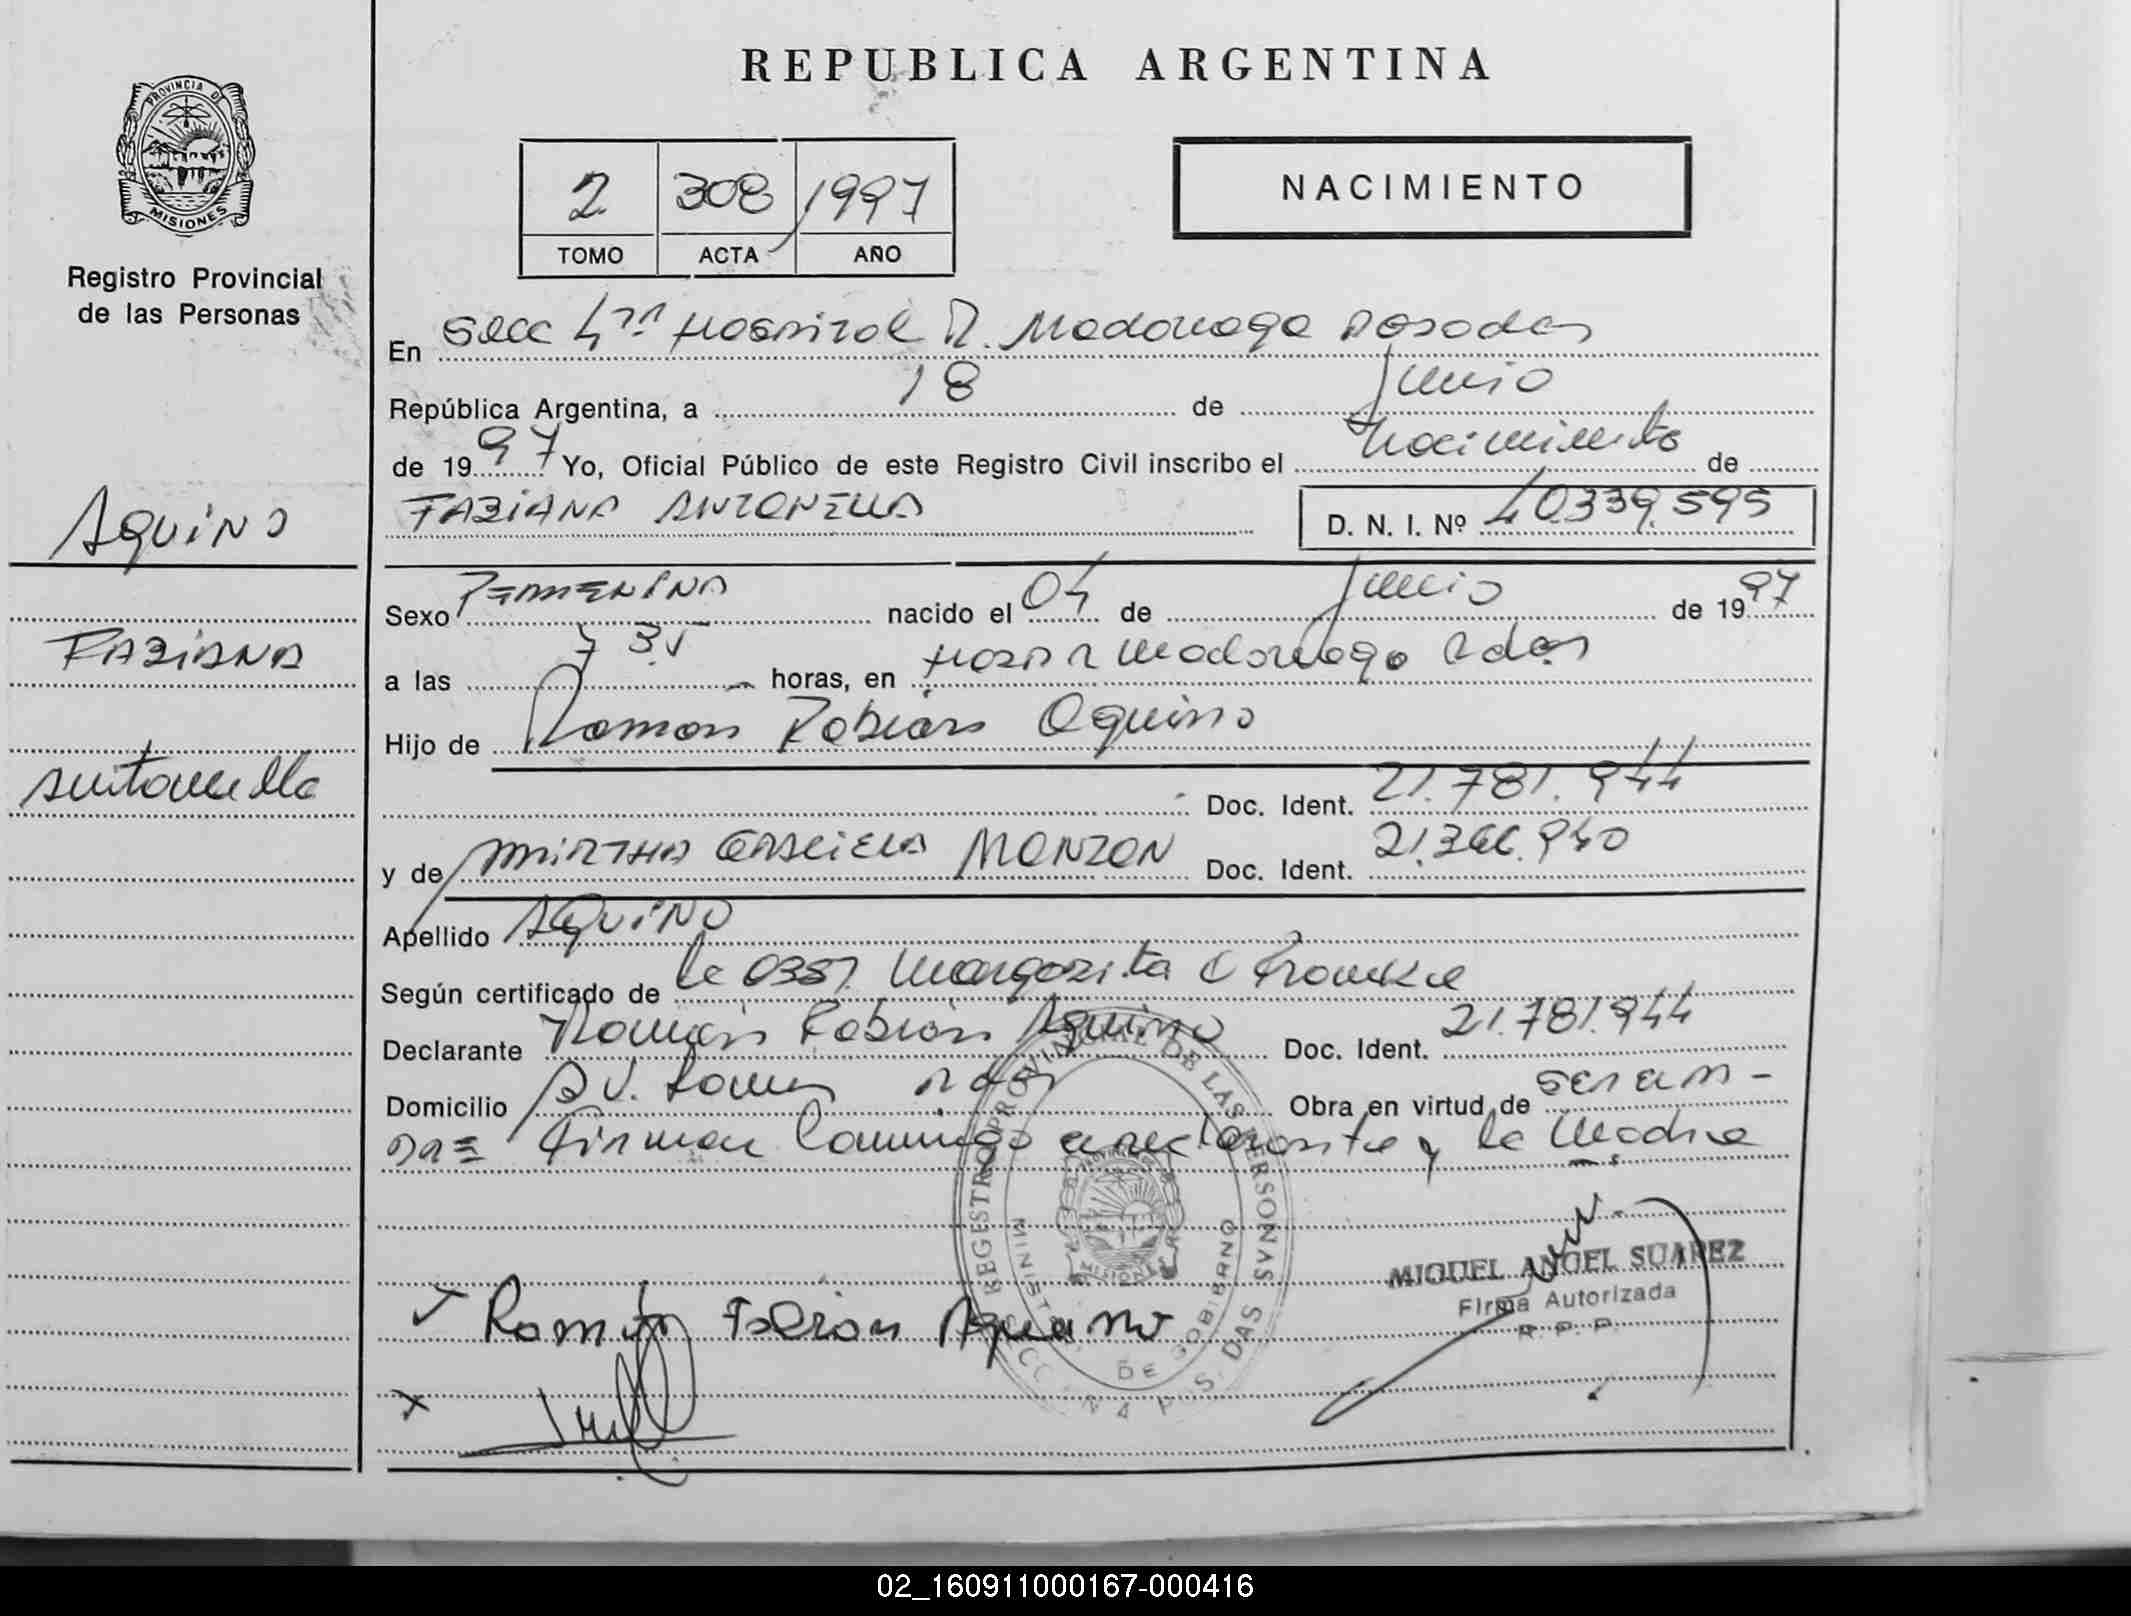 REPUBLICA ARGENTINA
PROVINCIA DE
MISIONES
Registro Provincial
de las Personas
2 308 1997
TOMO ACTA AÑO
NACIMIENTO
En Secc 4ta Hospital R. Madariaga Posadas
República Argentina, a 18 de Junio
de 1997 Yo, Oficial Público de este Registro Civil inscribo el nacimiento de
AQUINO
FABIANA ANTONELLA
D. N. I. Nº 40.339.595
Sexo FEMENINA nacido el 04 de Junio de 1997
FABIANA
a las 7 35 horas, en Hosp R Madariaga Pdas
Hijo de Ramon Fabian Aquino
Antonella
Doc. Ident. 21.781.944
y de MIRTHA GRACIELA MONZON Doc. Ident. 21.366.940
Apellido AQUINO
Según certificado de Margarita C
Declarante Ramon Fabian Aquino Doc. Ident. 21.781.944
Domicilio AV. Pdas Obra en virtud de ser el PA-
DRE Firman Conmigo declarante y la Madre
REGISTRO PROVINCIAL DE LAS PERSONAS
DE GOBIERNO
MIGUEL ANGEL SUAREZ
Firma Autorizada
R. P. P.
Ramon Fabian Aquino
02_160911000167-000416